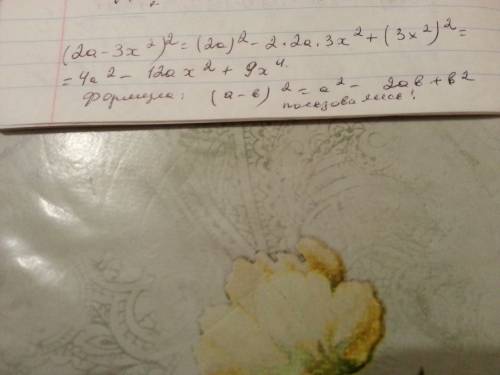 (2a-3x²)² = (2a)² - 2·2a·3x² + (3x²)² =
= 4a² - 12ax² + 9x⁴.
Формула: (a-в)² = a² - 2aв + в²
пользовались!